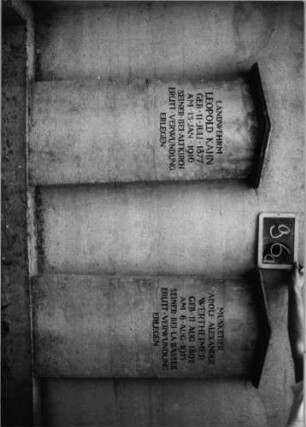 LANDWEHRM.
LEOPOLD KAHN
GEB·11·JULI·1877
AM·13·JAN·1916
SEINER·BEI·ALTKIRCH
ERLITT·VERWUNDUNG
ERLEGEN
MUSKETIER
ADOLF ALEXANDER
WERTHEIMER
GEB·11·AUG·1892
AM·6·AUG·1915
SEINER·BEI·LA BASSEE
ERLITT·VERWUNDUNG
ERLEGEN